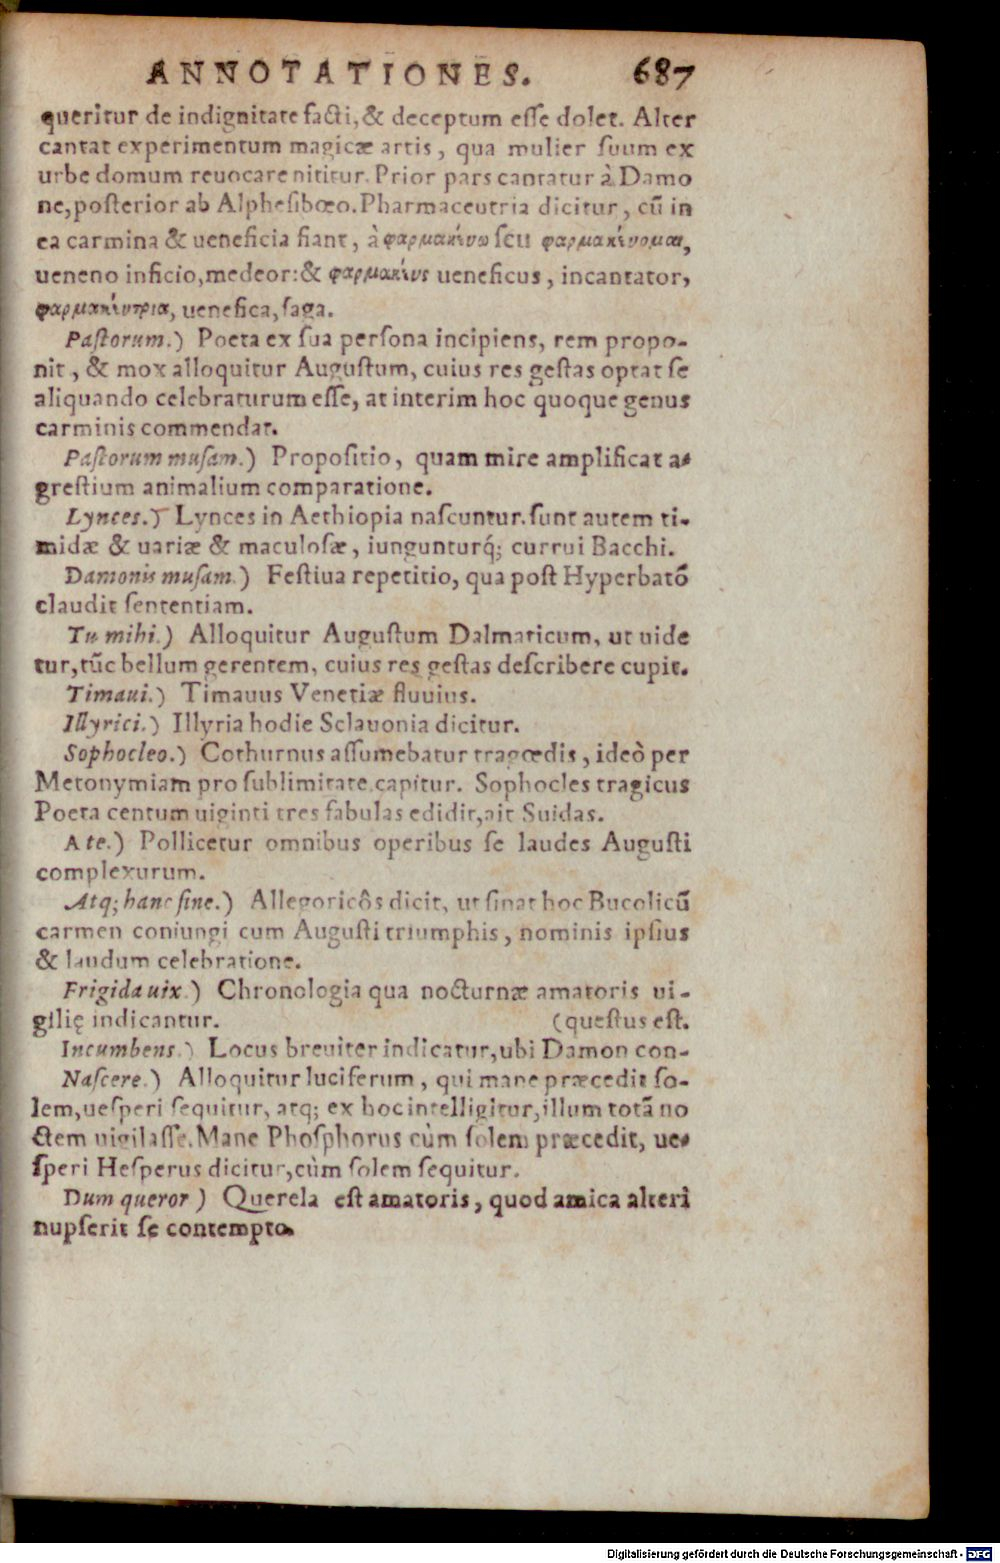 ANNOTATIONES. 687
queritur de indignitate facti, & deceptum esse dolet. Alter
cantat experimentum magicæ artis, qua mulier suum ex
urbe domum reuocare nititur. Prior pars cantatur à Damo
ne, posterior ab Alphesibœo. Pharmaceutria dicitur, cū in
ea carmina & ueneficia fiant, à φαρμακεύω seu φαρμακεύομαι,
ueneno inficio, medeor: & φαρμακεὺς ueneficus, incantator,
φαρμακεύτρια, uenefica, saga.
Pastorum.) Poeta ex sua persona incipiens, rem propo-
nit, & mox alloquitur Augustum, cuius res gestas optat se
aliquando celebraturum esse, at interim hoc quoque genus
carminis commendat.
Pastorum musam.) Propositio, quam mire amplificat a-
grestium animalium comparatione.
Lynces.) Lynces in Aethiopia nascuntur. sunt autem ti-
midæ & uariæ & maculosæ, iungunturq́; currui Bacchi.
Damonis musam.) Festiua repetitio, qua post Hyperbatō
claudit sententiam.
Tu mihi.) Alloquitur Augustum Dalmaticum, ut uide
tur, tūc bellum gerentem, cuius res gestas describere cupit.
Timaui.) Timauus Venetiæ fluuius.
Illyrici.) Illyria hodie Sclauonia dicitur.
Sophocleo.) Cothurnus assumebatur tragœdis, ideò per
Metonymiam pro sublimitate capitur. Sophocles tragicus
Poeta centum uiginti tres fabulas edidit, ait Suidas.
A te.) Pollicetur omnibus operibus se laudes Augusti
complexurum.
Atq; hanc sine.) Allegoricôs dicit, ut sinat hoc Bucolicū
carmen coniungi cum Augusti triumphis, nominis ipsius
& laudum celebratione.
Frigida uix.) Chronologia qua nocturnæ amatoris ui-
gilię indicantur. (questus est.
Incumbens.) Locus breuiter indicatur, ubi Damon con-
Nascere.) Alloquitur luciferum, qui mane præcedit so-
lem, uesperi sequitur, atq; ex hoc intelligitur, illum totā no
ctem uigilasse. Mane Phosphorus cùm solem præcedit, ue-
speri Hesperus dicitur, cùm solem sequitur.
Dum queror) Querela est amatoris, quod amica alteri
nupserit se contempto.
Digitalisierung gefördert durch die Deutsche Forschungsgemeinschaft - DFG